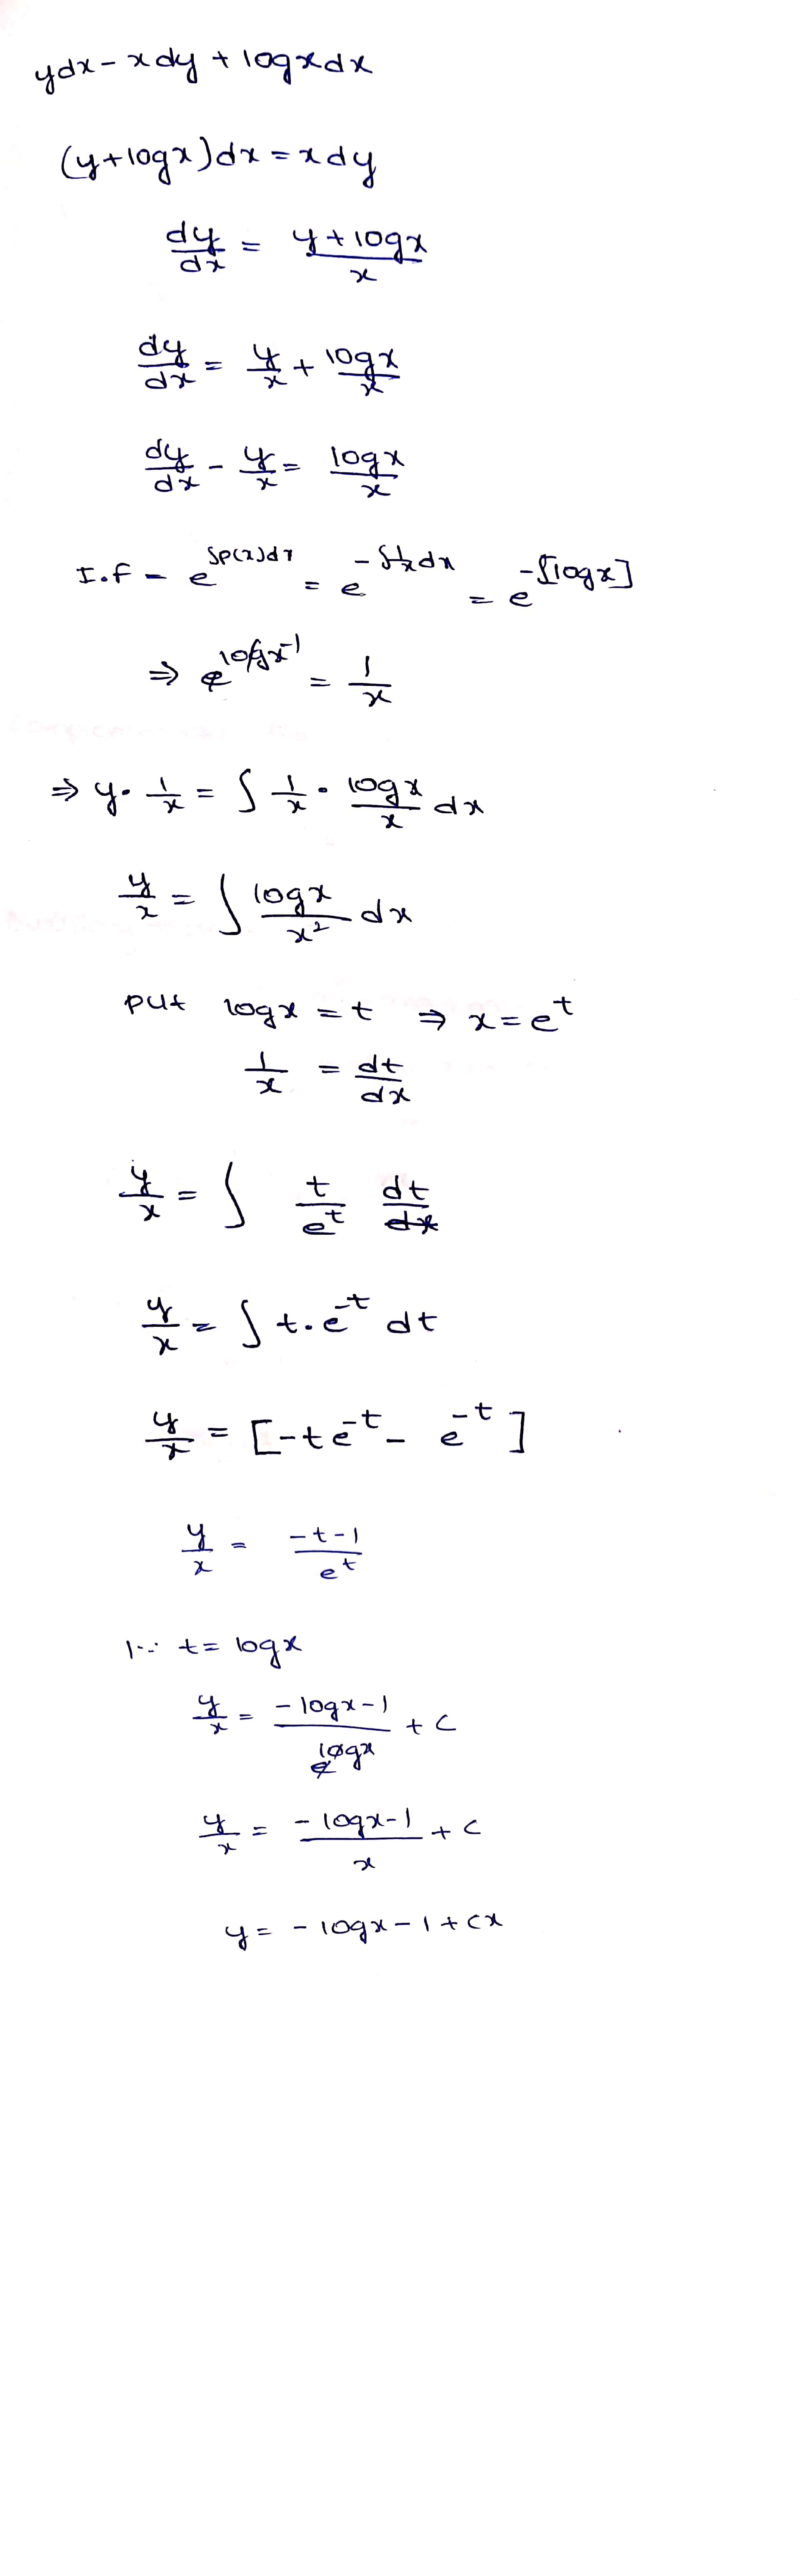 ydx - xdy + logxdx
(y+logx)dx = xdy
dy/dx = (y+logx)/x
dy/dx = y/x + logx/x
dy/dx - y/x = logx/x
I.f - e^{∫p(x)dx} = e^{-∫1/x dx} = e^{-[logx]}
⇒ e^{logx^{-1}} = 1/x
⇒ y. 1/x = ∫ 1/x . logx/x dx
y/x = ∫ logx/x² dx
put logx = t ⇒ x = e^t
1/x = dt/dx
y/x = ∫ t/e^t dt/dx
y/x = ∫ t.e^{-t} dt
y/x = [-te^{-t} - e^{-t}]
y/x = (-t-1)/e^t
∵ t = logx
y/x = (-logx-1)/e^{logx} + c
y/x = (-logx-1)/x + c
y = -logx-1+cx